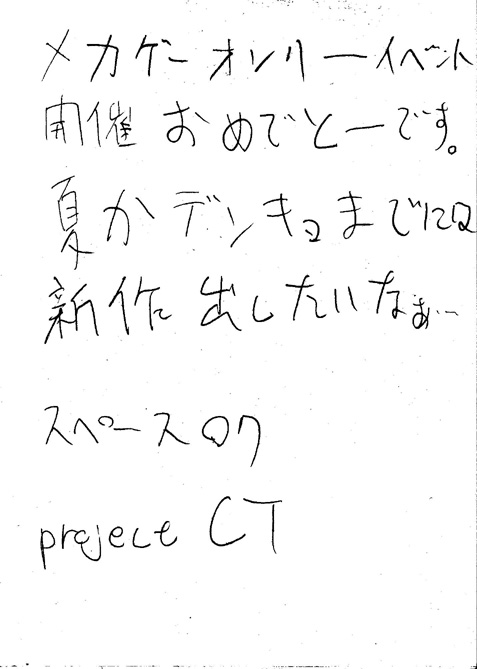 メカゲーオンリーイベント
開催おめでとーです。
夏かデンキヨまでには
新作出したいなぁ…
スペースロク
project CT